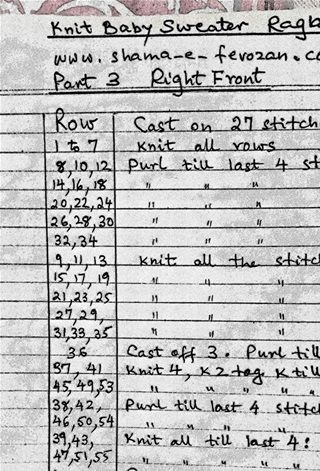 Knit Baby Sweater Ragla
www.shama-e-ferozan.co
Part 3 Right Front
Row Cast on 27 stitch
1 to 7 Knit all rows
8,10,12 Purl till last 4 st
14,16,18 " " "
20,22,24 " " "
26,28,30 " " "
32,34 " " "
9,11,13 Knit all the stitch
15,17,19 " " "
21,23,25 " " "
27,29, " " "
31,33,35 " " "
36 Cast off 3. Purl till
37, 41 Knit 4, K2tog, K till
45,49,53 " " " " "
38,42, Purl till last 4 stitc
46,50,54 " " " "
39,43, Knit all till last 4:
47,51,55 " " " "